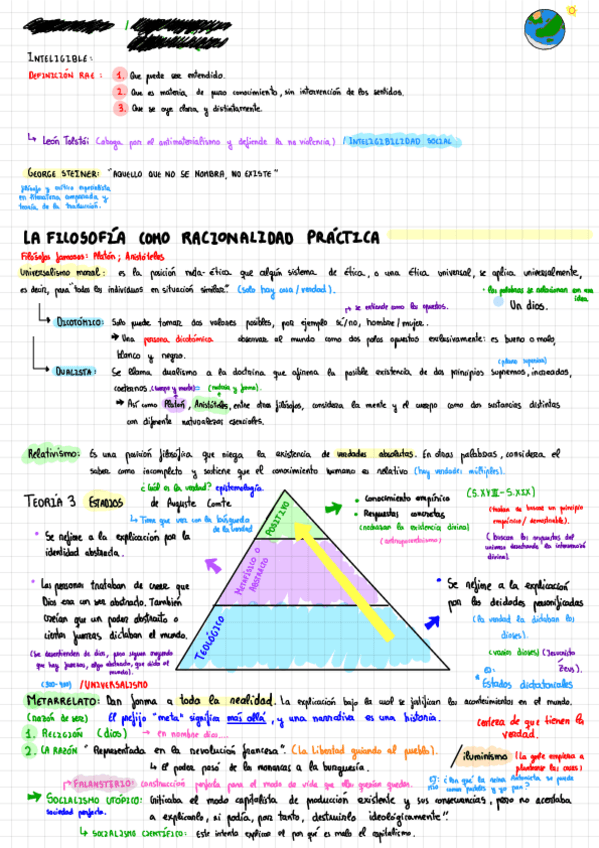 INTELIGIBLE:
DEFINICIÓN RAE: 1. Que puede ser entendido.
2. Que es materia de puro conocimiento, sin intervención de los sentidos.
3. Que se oye clara y distintamente.
↳ León Tolstói (aboga por el antimaterialismo y defiende la no violencia) / INTELIGIBILIDAD SOCIAL
GEORGE STEINER: "AQUELLO QUE NO SE NOMBRA, NO EXISTE"
filósofo y crítico especialista
en literatura comparada y
teoría de la traducción.
LA FILOSOFÍA COMO RACIONALIDAD PRÁCTICA
Filósofos famosos: Platón; Aristóteles
Universalismo moral: es la posición meta-ética que algún sistema de ética, o una ética universal, se aplica universalmente,
es decir, para "todos los individuos en situación similar." (solo hay una/verdad).
• las palabras se relacionan en una
idea.
Un dios.
→ se entiende como los opuestos.
↳ DICOTÓMICO: Solo puede tomar dos valores posibles, por ejemplo sí/no, hombre/mujer.
⇒ Una persona dicotómica observar al mundo como dos polos opuestos exclusivamente: es bueno o malo,
blanco y negro.
(plano superior)
↳ DUALISTA: Se llama dualismo a la doctrina que afirma la posible existencia de dos principios supremos, increados,
coeternos. (cuerpo y mente)= (materia y forma).
⇒ Así como Platón, Aristóteles, entre otros filósofos, considera la mente y el cuerpo como dos sustancias distintas
con diferente naturalezas esenciales.
Relativismo: Es una posición filosófica que niega la existencia de verdades absolutas. En otras palabras, considera el
saber como incompleto y sostiene que el conocimiento humano es relativo (hay verdades múltiples).
¿Cuál es la verdad? epistemología.
TEORÍA 3 ESTADIOS de Auguste Comte
↳ Tiene que ver con la búsqueda
de la verdad
• Se refiere a la explicación por la
identidad abstracta.
• Las personas trataban de creer que
Dios era un ser abstracto. También
creían que un poder abstracto o
ciertas fuerzas dictaban el mundo.
(Se desentienden de dios, pero siguen creyendo
que hay fuerzas, algo abstracto, que dicta el
mundo).
POSITIVO
METAFÍSICO O
ABSTRACTO
TEOLÓGICO
• Conocimiento empírico (S.XVIII-S.XIX)
• Respuestas concretas
(rechazan la existencia divina)
(antropocentrismo)
(tratan de buscar un principio
empírico/demostrable).
(buscan las respuestas del
universo descartando la intervención
divina).
• Se refiere a la explicación
por las deidades personificadas
(la verdad la dictaban los
dioses).
(varios dioses)
Zeus).
Estados dictatoriales
/UNIVERSALISMO
METARRELATO: Dan forma a toda la realidad. La explicación bajo la cual se justifican los acontecimientos en el mundo.
(razón de ser) El prefijo "meta" significa más allá, y una narrativa es una historia.
certeza de que tienen la
verdad.
1. RELIGIÓN (dios) → en nombre dios....
2. LA RAZÓN "Representada en la revolución francesa". (La Libertad guiando al pueblo).
↳ El poder pasó de la monarcas a la burguesía.
/iluminismo (La gente empieza a
plantearse las cosas)
→ FALANSTERIO: construcción perfecta para el modo de vida que ellos querían gueden.
→ SOCIALISMO UTÓPICO: Criticaba el modo capitalista de producción existente y sus consecuencias, pero no acertaba
sociedad perfecta. a explicarlo, ni podía, por tanto, destruirlo ideológicamente."
↳ SOCIALISMO CIENTÍFICO: Este intenta explicar el por qué es malo el capitalismo.